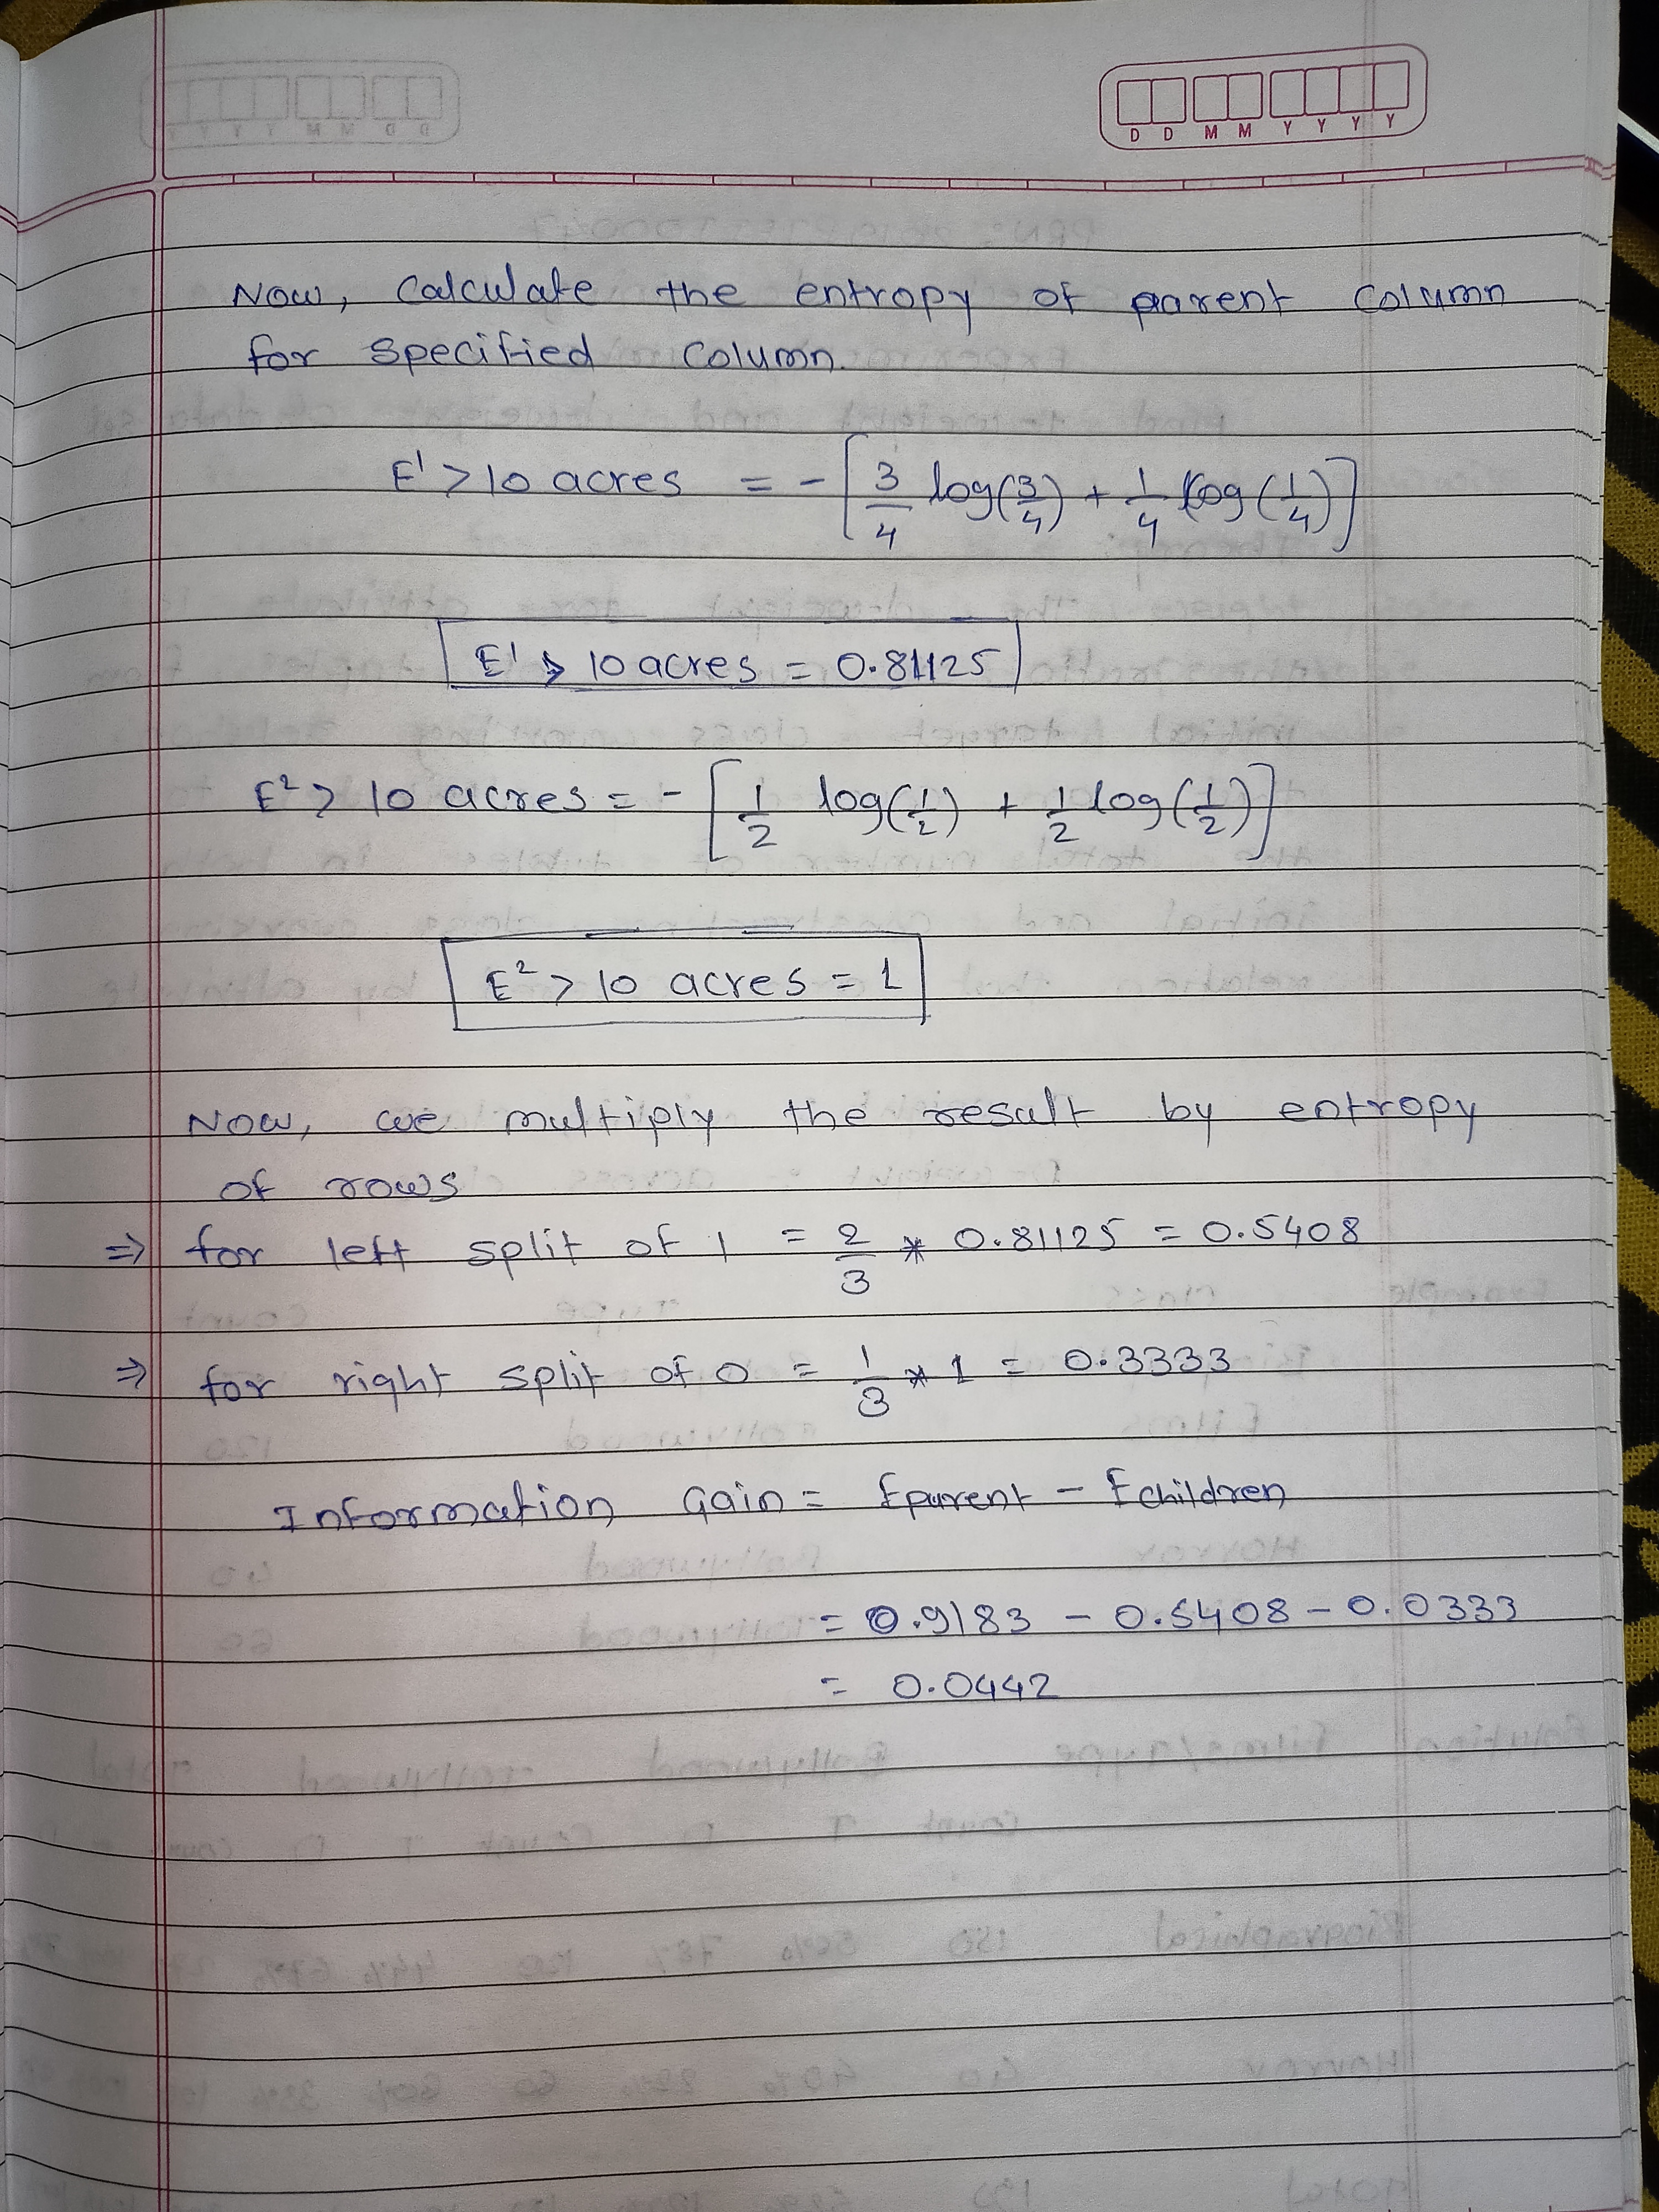 D D M M Y Y Y Y
Now, Calculate the entropy of parent column
for specified column.
E¹ > 10 acres = - [3/4 log(3/4) + 1/4 log(1/4)]
E¹ > 10 acres = 0.81125
E² > 10 acres = - [1/2 log(1/2) + 1/2 log(1/2)]
E² > 10 acres = 1
Now, we multiply the result by entropy
of rows
⇒ for left split of 1 = 2/3 * 0.81125 = 0.5408
⇒ for right split of 0 = 1/3 * 1 = 0.3333
Information Gain = Eparent - Echildren
= 0.9183 - 0.5408 - 0.0333
= 0.0442